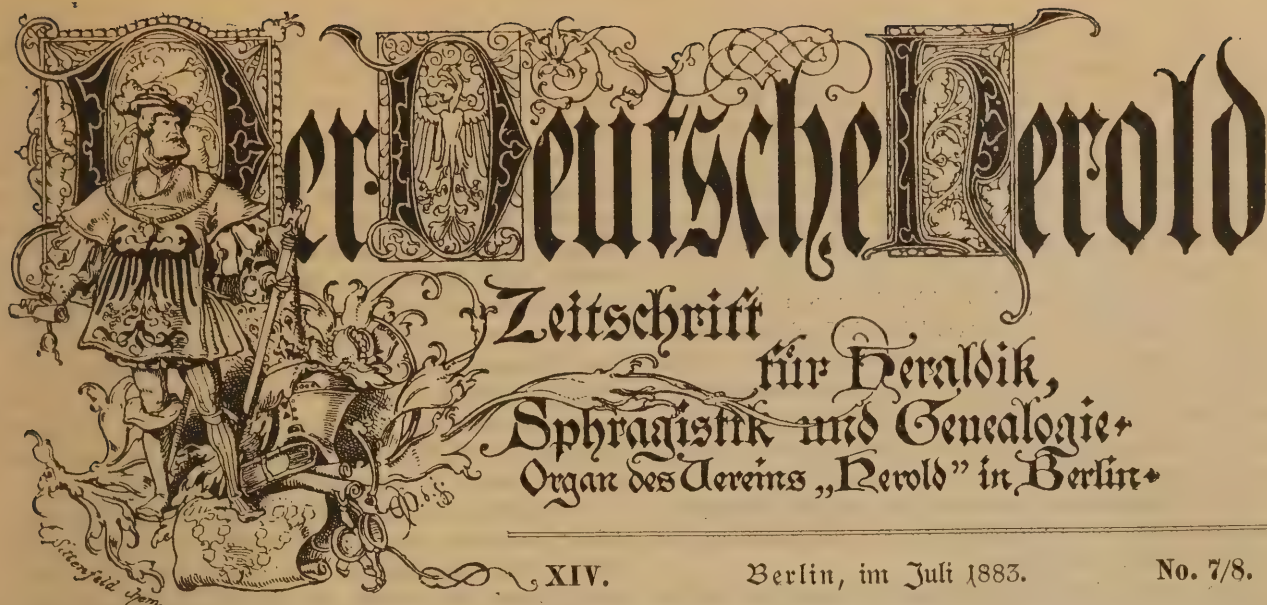 Der Deutsche Herold
Zeitschrift
für Heraldik,
Sphragistik und Genealogie.
Organ des Vereins „Herold” in Berlin.
XIV. Berlin, im Juli 1883. No. 7/8.